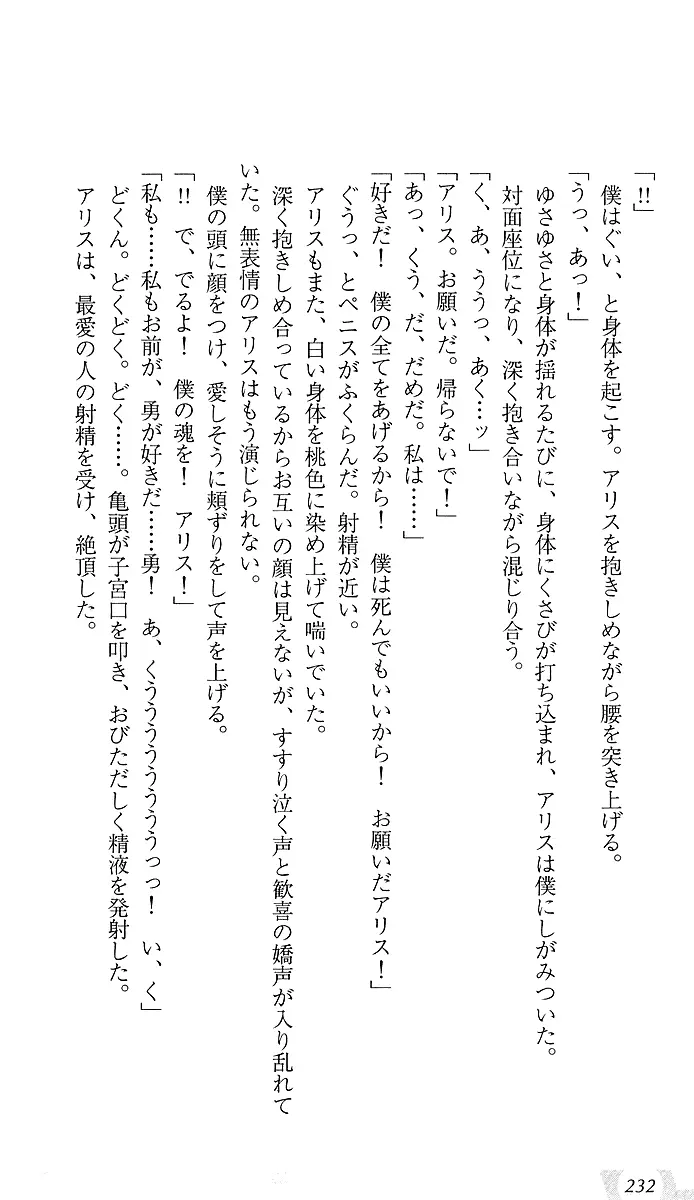 「‼」
僕はぐい、と身体を起こす。アリスを抱きしめながら腰を突き上げる。
「うっ、あっ！」
ゆさゆさと身体が揺れるたびに、身体にくさびが打ち込まれ、アリスは僕にしがみついた。
対面座位になり、深く抱き合いながら混じり合う。
「く、あ、ううっ、あく…ッ」
「アリス。お願いだ。帰らないで！」
「あっ、くう、だ、だめだ。私は……」
「好きだ！　僕の全てをあげるから！　僕は死んでもいいから！　お願いだアリス！」
ぐうっ、とペニスがふくらんだ。射精が近い。
アリスもまた、白い身体を桃色に染め上げて喘いでいた。
深く抱きしめ合っているからお互いの顔は見えないが、すすり泣く声と歓喜の嬌声が入り乱れて
いた。無表情のアリスはもう演じられない。
僕の頭に顔をつけ、愛しそうに頬ずりをして声を上げる。
「‼　で、でるよ！　僕の魂を！　アリス！」
「私も……私もお前が、勇が好きだ……勇！　あ、くうううううううっっ！　い、く」
どくん。どくどく。どく……。亀頭が子宮口を叩き、おびただしく精液を発射した。
アリスは、最愛の人の射精を受け、絶頂した。
232